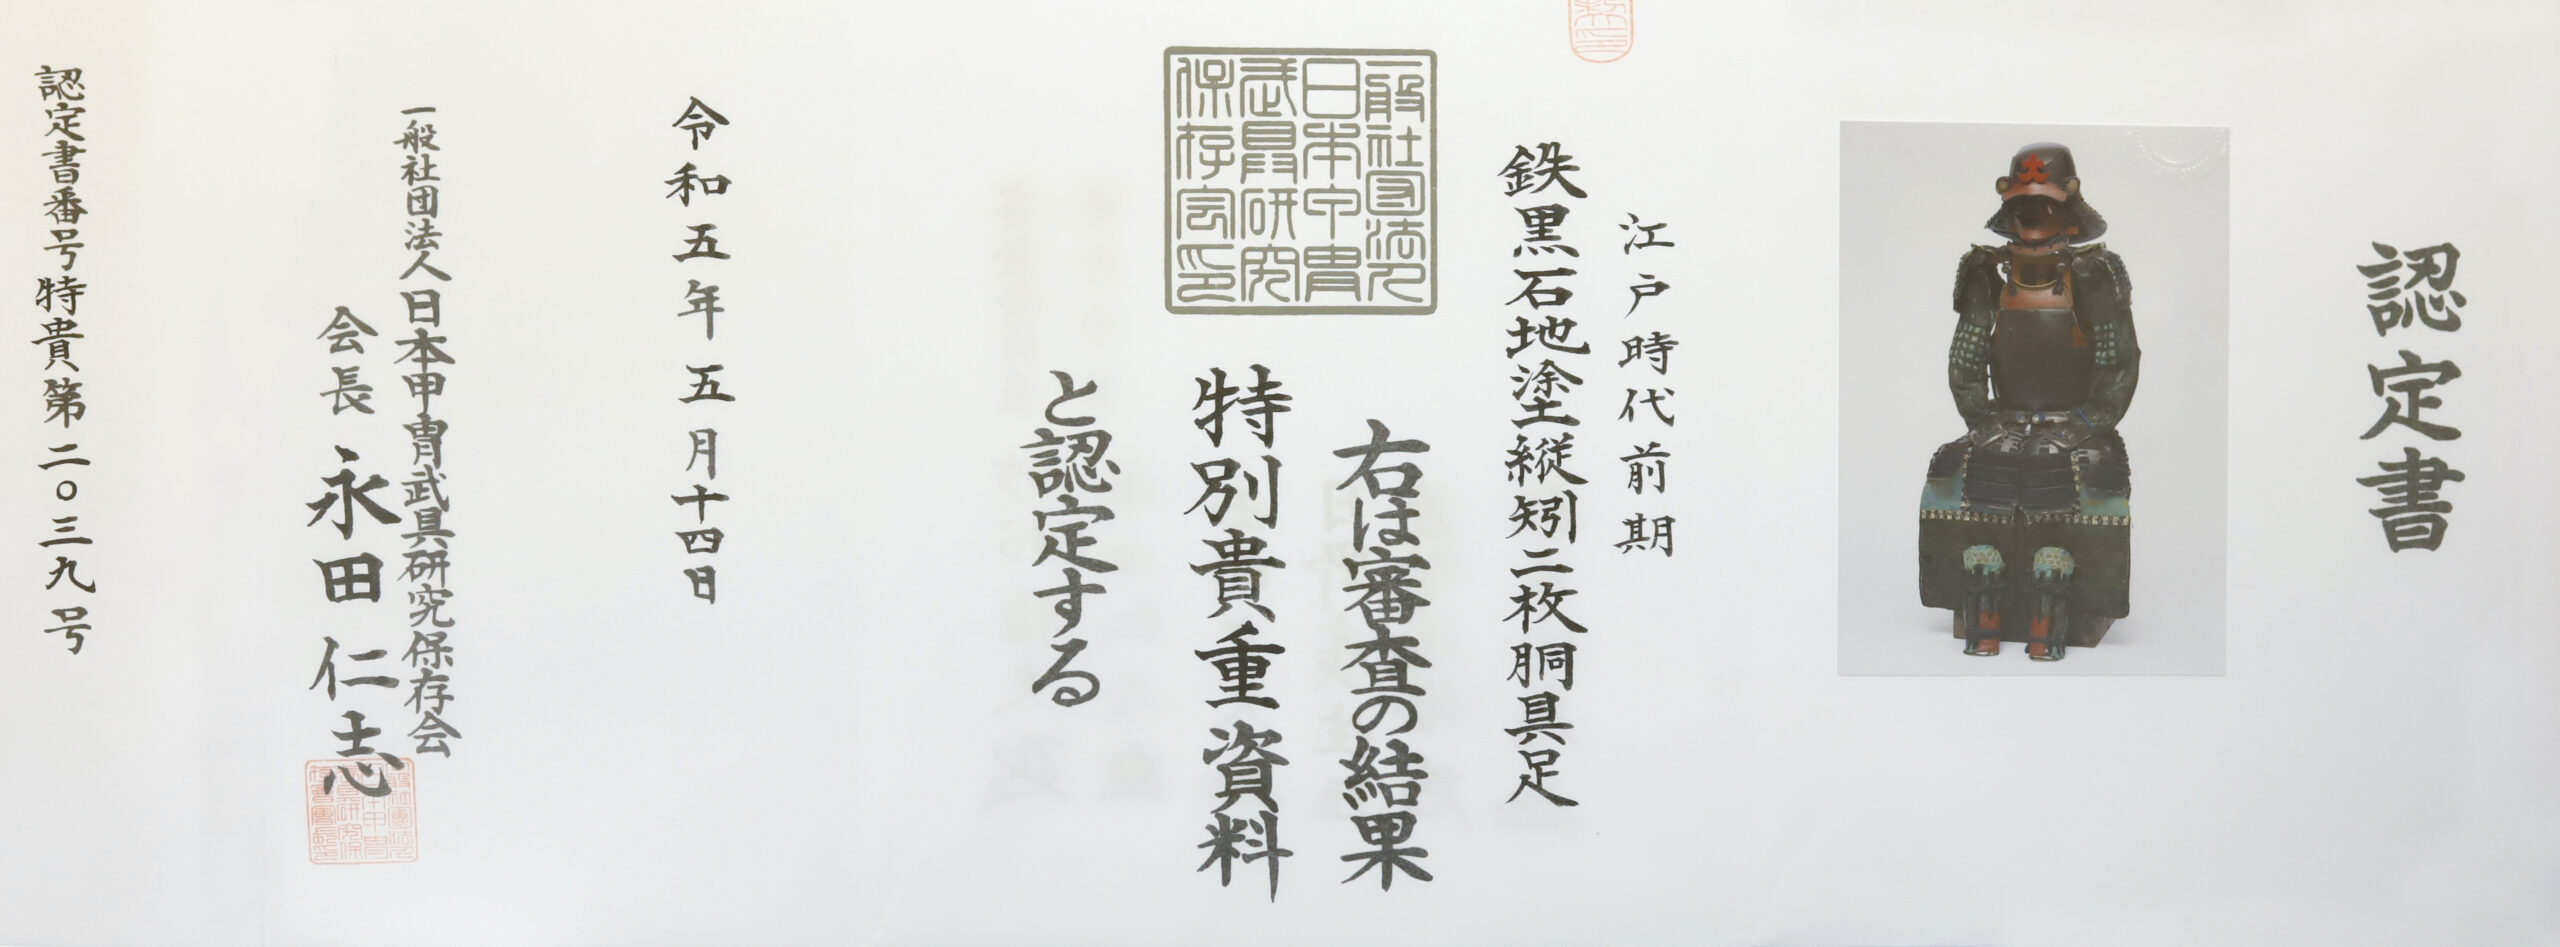 認定書
江戸時代前期
鉄黒石地塗縦矧二枚胴具足
右は審査の結果
一般社団法人
日本甲冑
武具研究
保存会印
特別貴重資料
と認定する
令和五年五月十四日
一般社団法人日本甲冑武具研究保存会
会長 永田仁志
認定書番号特貴第二〇三九号